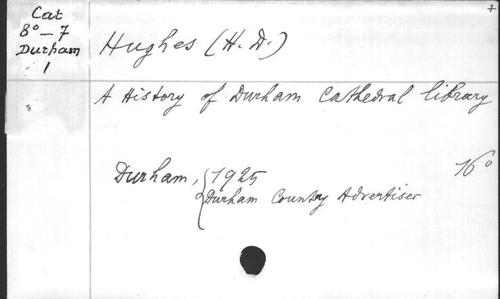 Cat
8° – 7
Durham
1
Hughes (H. D.)
A History of Durham Cathedral library
Durham, 1925 16°
Durham Country Advertiser